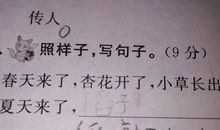 传人
照样子，写句子。（9分）
春天来了，杏花开了，小草长出
夏天来了，